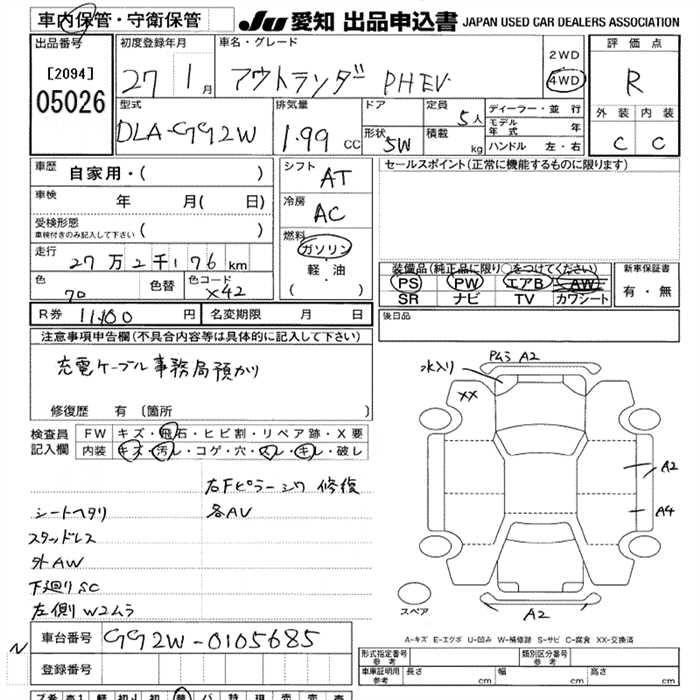 車内保管・守衛保管 JU 愛知 出品申込書 JAPAN USED CAR DEALERS ASSOCIATION
出品番号 [2094] 05026
初度登録年月 27 1月
車名・グレード アウトランダー PHEV
2WD 4WD
評価点 R
外装 内装
C C
型式 DLA-GG2W
排気量 1.99 CC
ドア
形状 5W
定員 5人
積載 kg
ディーラー・並行
モデル年式 年
ハンドル 左・右
車歴 自家用・( )
車検 年 月( 日)
受検形態 ( )
車検付きのみ記入して下さい
走行 27万2千176km
色 70 色替 色コード X42
R券 11,100 円 名変期限 月 日
シフト AT
冷房 AC
燃料 ガソリン
軽・油
( )
セールスポイント(正常に機能するものに限ります)
装備品(純正品に限り○をつけてください)
PS PW エアB AW
SR ナビ TV カワシート
新車保証書
有・無
後日品
注意事項申告欄(不具合内容等は具体的に記入して下さい)
充電ケーブル事務局預かり
修復歴 有 〔箇所 〕
検査員記入欄
FW キズ・飛石・ヒビ割・リペア跡・X要
内装 キズ・汚レ・コゲ・穴・スレ・キレ・破レ
右Fピラーシワ 修復
シートヘタリ 各AU
スタッドレス
外AW
下廻りSC
左側W2ムラ
水入り PAラ A2
XX
A2
A4
A2
スペア
A-キズ E-エクボ U-凹み W-補修跡 S-サビ C-腐食 XX-交換済
N
車台番号 GG2W-0105685
登録番号
形式指定番号 参考
類別区分番号 参考
車庫証明用 参考 長さ cm 幅 cm 高さ cm